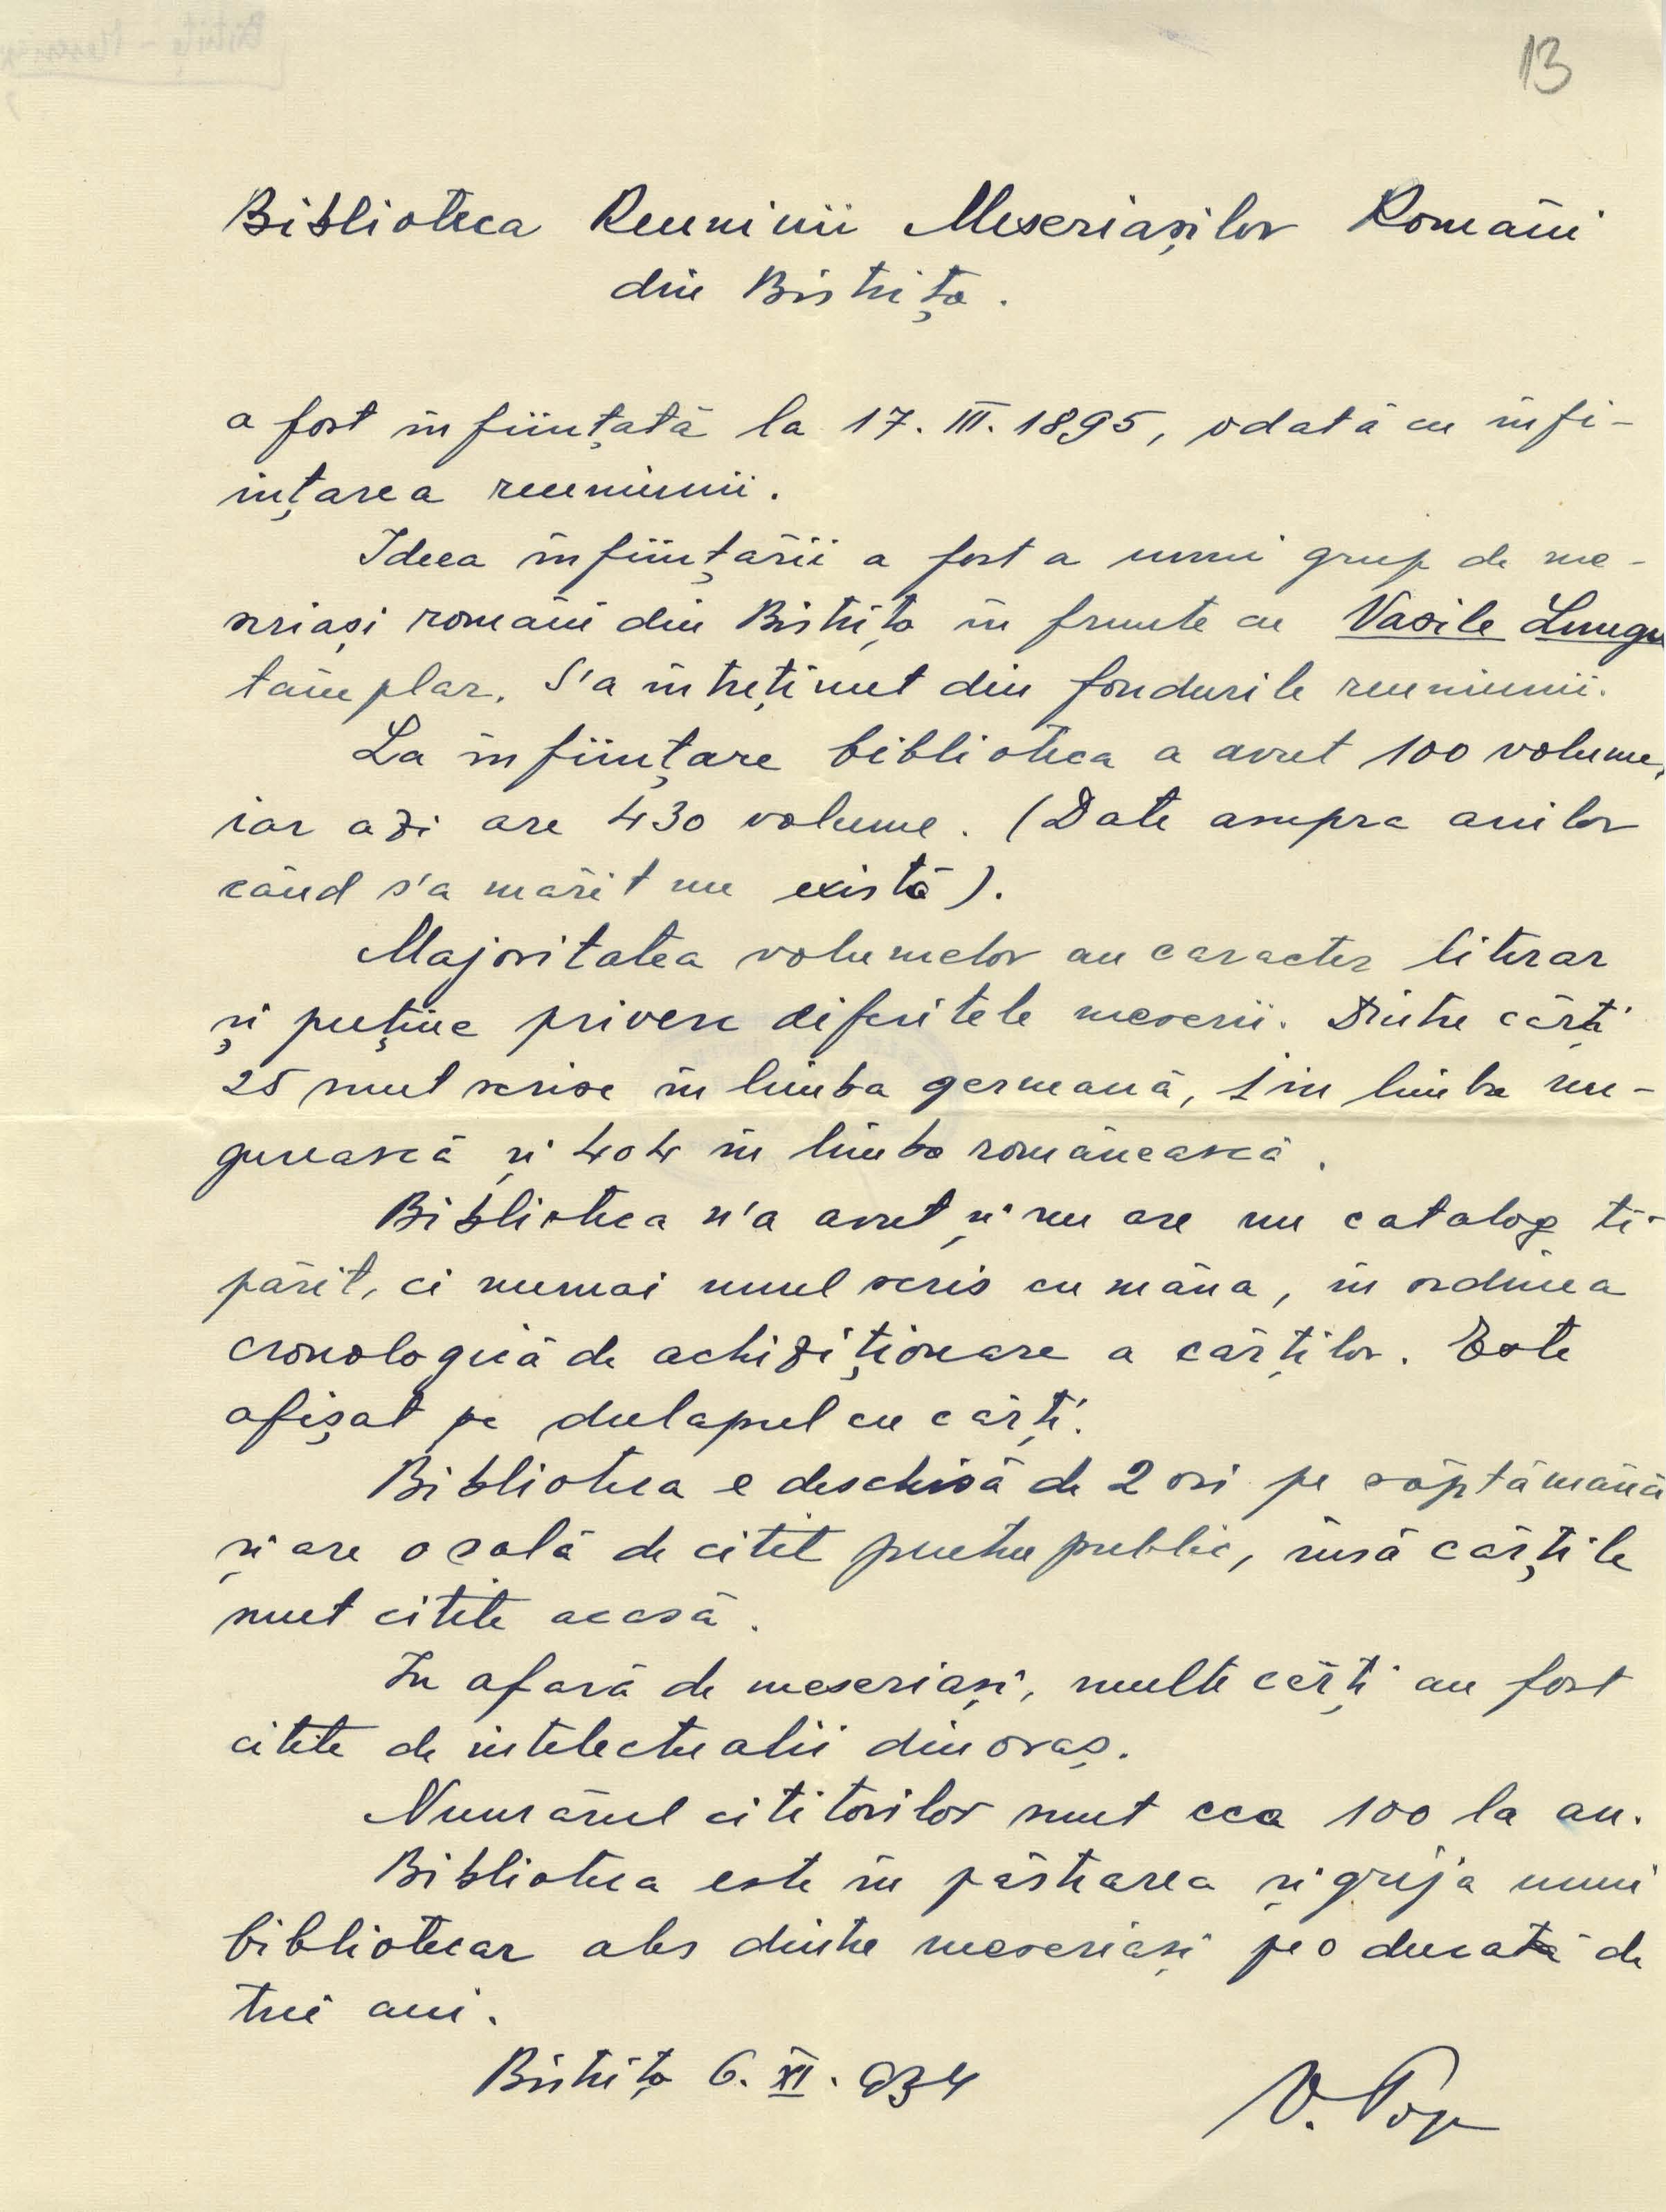 13
Biblioteca Reuninii Meseriașilor Români
din Bistrița.
a fost înființată la 17. III. 1895, odată cu înfi-
ințarea reuniunii.
Ideea înființării a fost a unui grup de me-
seriași români din Bistrița în frunte cu Vasile Lungu
tâmplar. S'a întreținut din fondurile reuniunii.
La înființare biblioteca a avut 100 volume,
iar azi are 430 volume. (Date asupra anilor
când s'a mărit nu există).
Majoritatea volumelor au caracter literar
și puține privesc diferitele meserii. Dintre cărți
25 sunt scrise în limba germană, 1 in limba un-
gurească și 404 în limba românească.
Biblioteca n'a avut și nu are un catalog ti-
părit, ci numai unul scris cu mâna, în ordinea
cronologică de achiziționare a cărților. Este
afișat pe dulapul cu cărți.
Biblioteca e deschisă de 2 ori pe săptămână
și are o sală de citit pentru public, însă cărțile
sunt citite acasă.
In afară de meseriași, multe cărți au fost
citite de intelectualii din oraș.
Numărul cititorilor sunt cca 100 la an.
Biblioteca este în păstrarea și grija unui
bibliotecar ales dintre meseriași pe o durată de
trei ani.
Bistrița 6. XI. 934
V. Pop